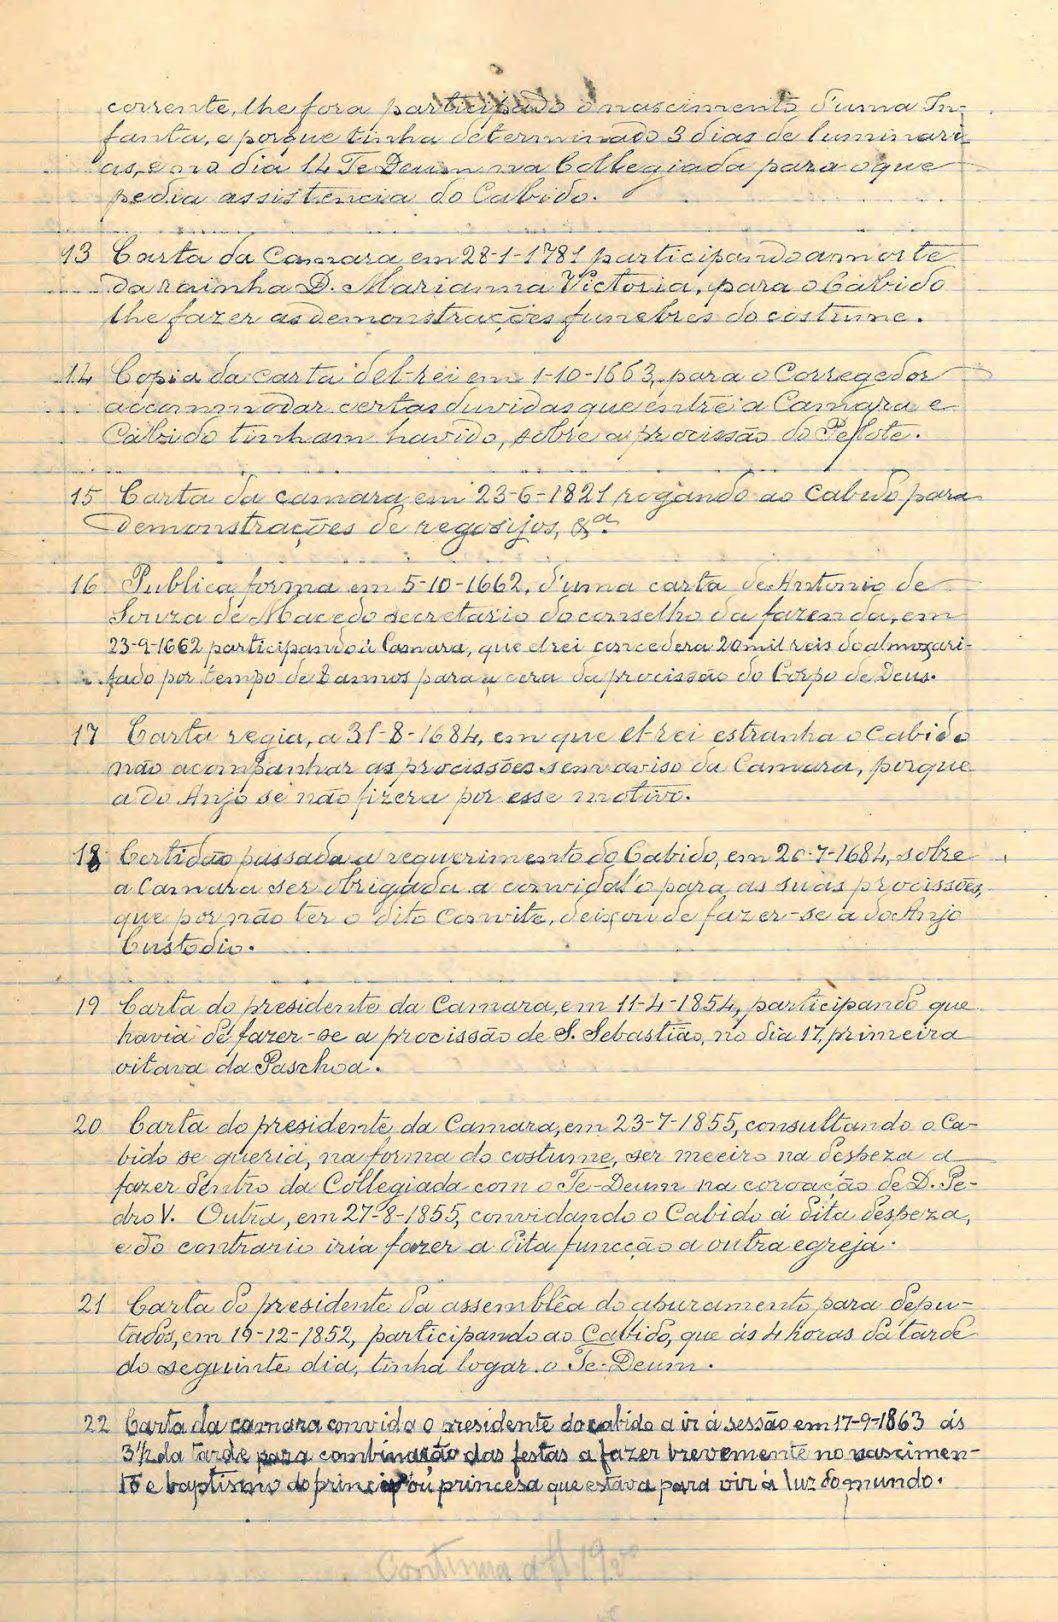 corrente, lhe fora participado o nascimento d'uma In-
fanta, e porque tinha determinado 3 dias de luminari-
as, e no dia 14 Te Deum na Collegiada para o que
pedia assistencia do Cabido.
13 Carta da Camara em 28-1-1781 participando a morte
da rainha D. Marianna Victoria, para o Cabido
lhe fazer as demonstrações funebres do costume.
14 Copia da carta del-rei em 1-10-1663, para o Corregedor
accommodar certas duvidas que entre a Camara e
Cabido tinham havido, sobre a procissão do Pelote.
15 Carta da camara em 23-6-1821 rogando ao Cabido para
demonstrações de regosijos, &ª.
16 Publica forma em 5-10-1662, d'uma carta de Antonio de
Souza de Macedo secretario do conselho da fazenda, em
23-9-1662 participando á Camara, que el rei concedera 20 mil reis do almoxari-
fado por tempo de 8 annos para a cera da procissão do Corpo de Deus.
17 Carta regia, a 31-8-1684, em que el-rei estranha o Cabido
não acompanhar as procissões sem aviso da Camara, porque
a do Anjo se não fizera por esse motivo.
18 Certidão passada a requerimento do Cabido, em 20-7-1684, sobre
a Camara ser obrigada a convidal'o para as suas procissões,
que por não ter o dito convite, deixou de fazer-se a do Anjo
Custodio.
19 Carta do presidente da Camara, em 11-4-1854, participando que
havia de fazer-se a procissão de S. Sebastião, no dia 17, primeira
oitava da Paschoa.
20 Carta do presidente da Camara, em 23-7-1855, consultando o Ca-
bido se queria, na forma do costume, ser meeiro na despeza a
fazer dentro da Collegiada com o Te-Deum na coroação de D. Pe-
dro V. Outra, em 27-8-1855, convidando o Cabido á dita despeza,
e do contrario iria fazer a dita funcção a outra egreja.
21 Carta do presidente da assemblêa do apuramento para depu-
tados, em 19-12-1852, participando ao Cabido, que ás 4 horas da tarde
do seguinte dia, tinha logar o Te-Deum.
22 Carta da camara convida o presidente do cabido a ir á sessão em 17-9-1863 ás
3½ da tarde para combinação das festas a fazer brevemente no nascimen-
to e baptismo do principe ou princesa que estava para vir á luz do mundo.
Continua a fl 19vº